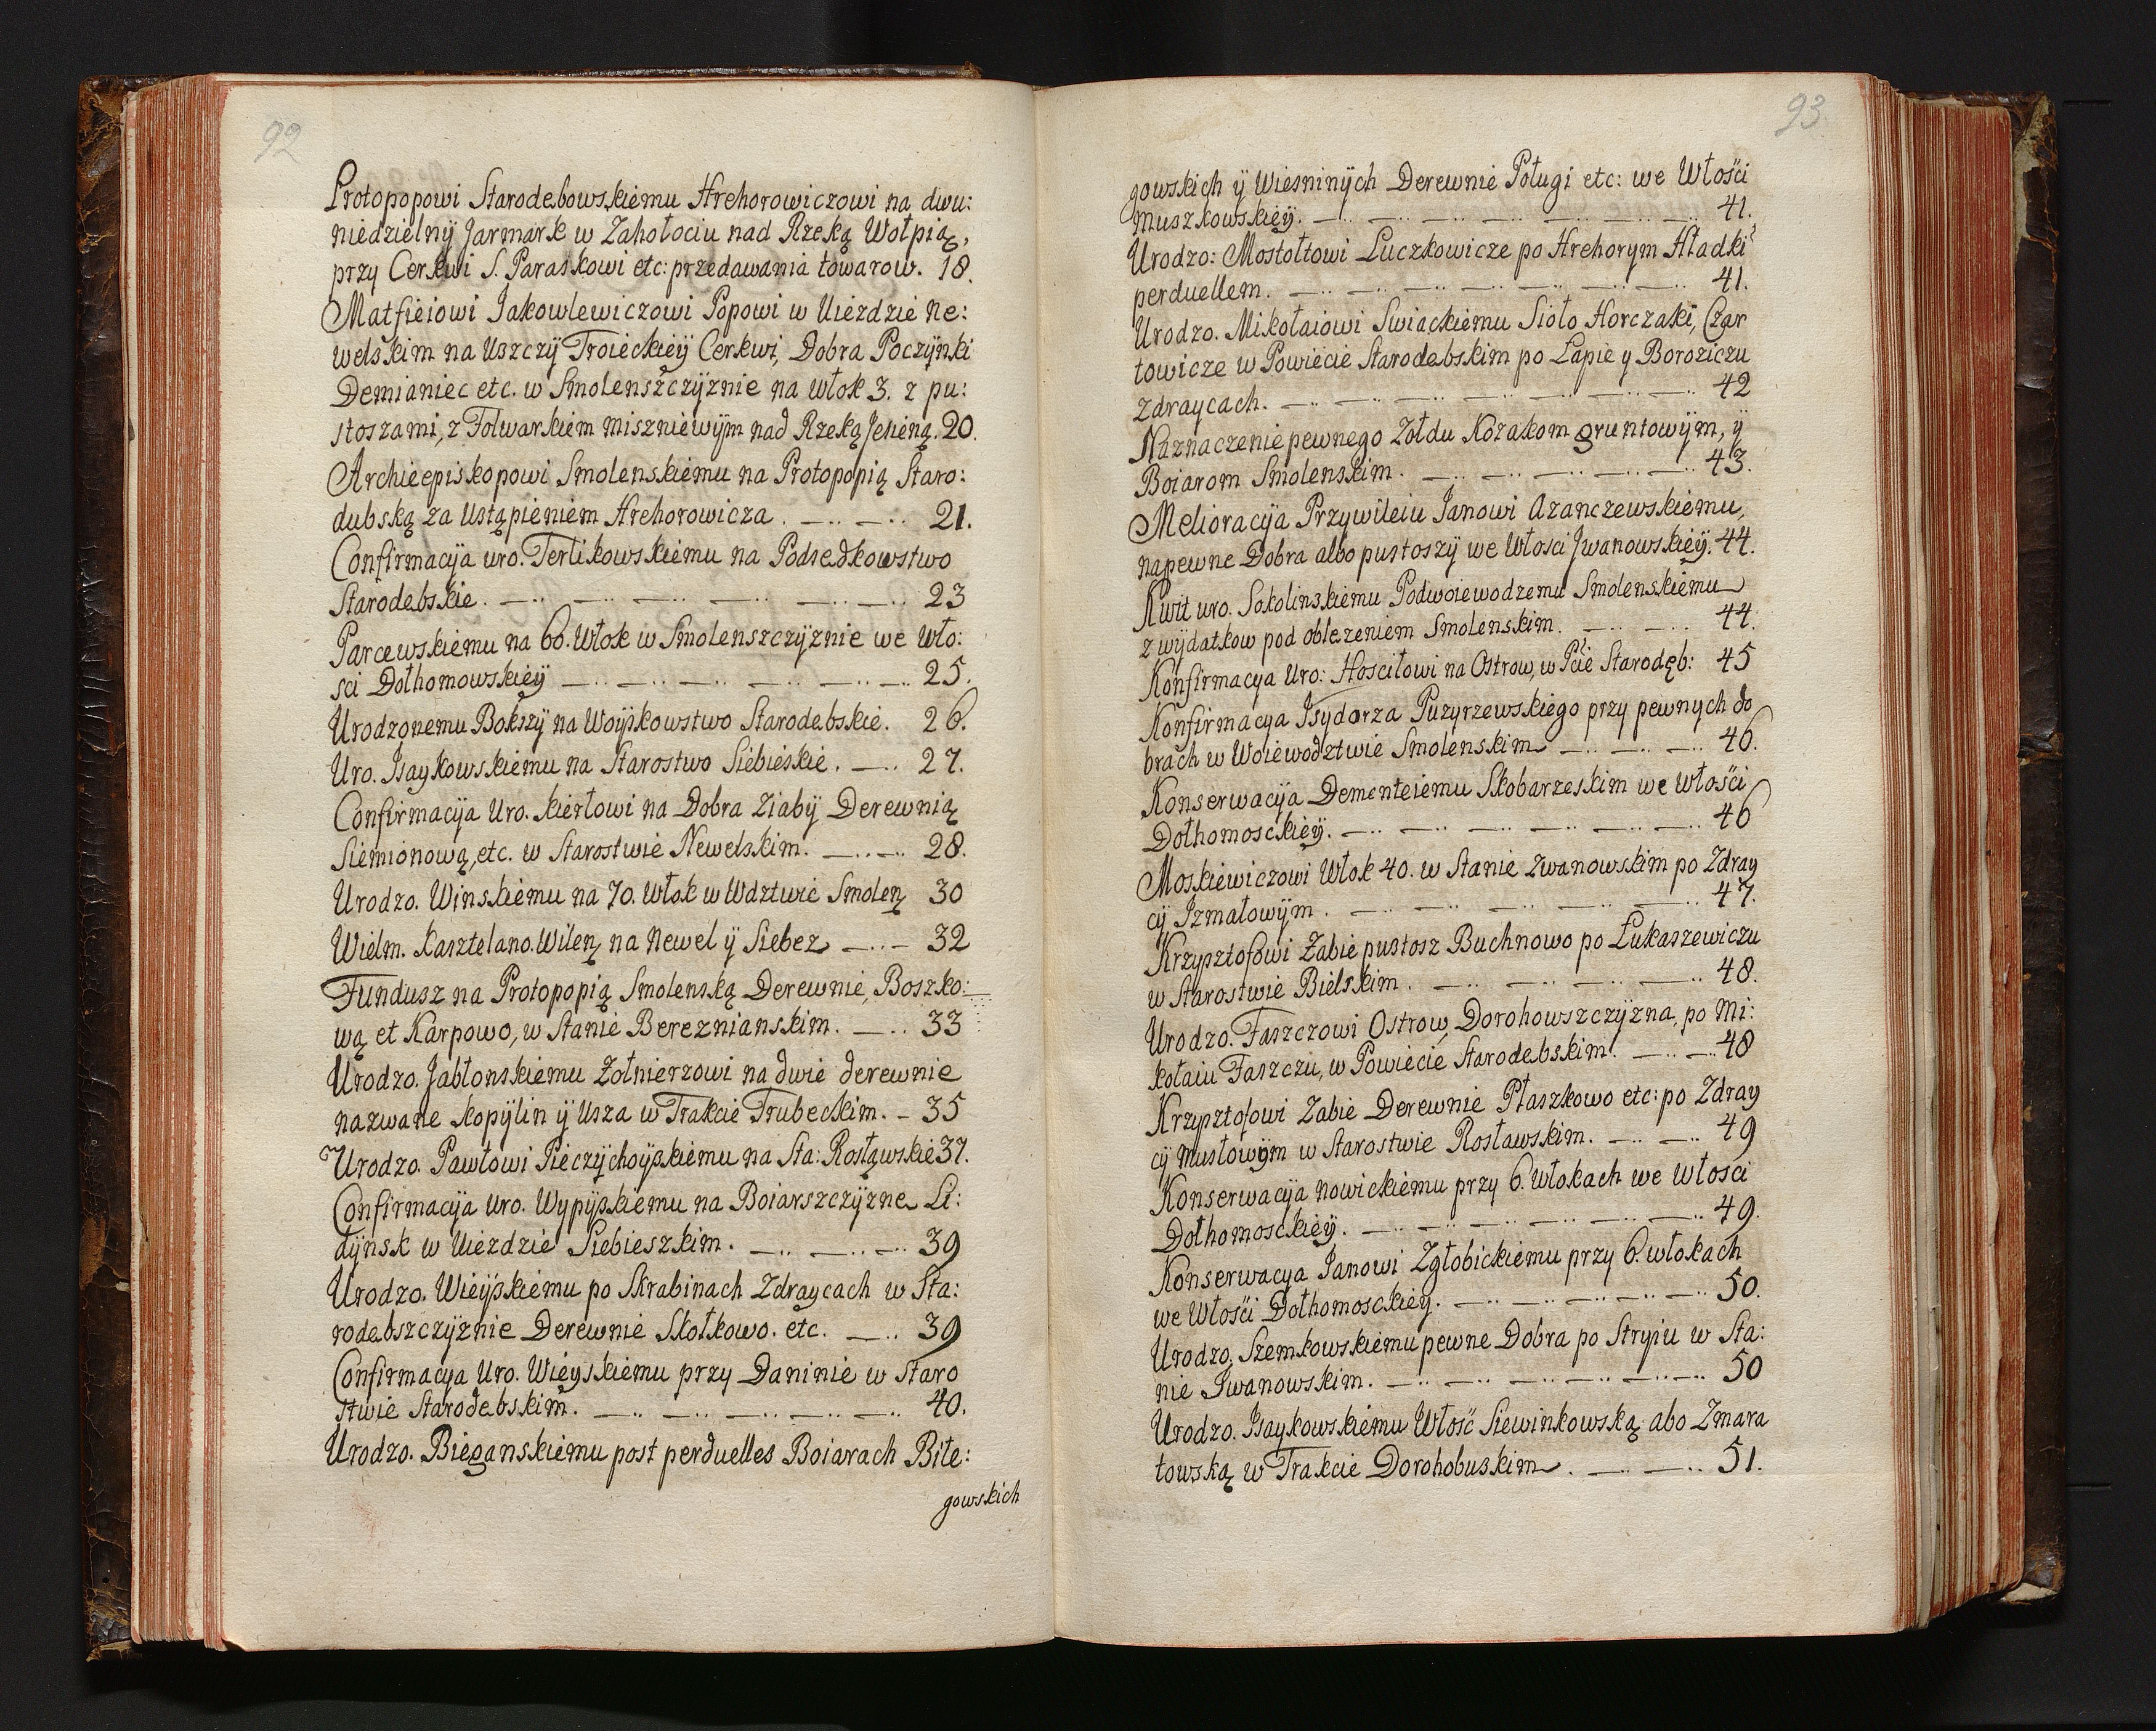 92
Protopopowi Starodebowskiemu Hrehorowiczowi na dwu:
niedzielnÿ Jarmark w Zahołociu nad Rzeką Wołpią,
przy Cerkwi S. Paraskowi etc: przedawania towarow. 18.
Matfieiowi Jakowlewiczowi Popowi w Uiezdzie Ne:
welskim na Uszczÿ Troieckieÿ Cerkwi, Dobra Poczÿnki
Demianiec etc. w Smolenszczÿznie na włok 3. z pu:
stoszami, z Folwarkiem miszniewÿm nad Rzeką Jesieną. 20.
Archieepiskopowi Smolenskiemu na Protopopią Staro:
dubską za Ustąpieniem Hrehorowicza. 21.
Confirmacÿa uro. Terlikowskiemu na Podsedkowstwo
Starodebskie. 23
Parcewskiemu na 60. Włok w Smolenszczÿznie we Wło:
sci Dołhomowskieÿ 25.
Urodzonemu Bokszÿ na Woÿskowstwo Starodebskie. 26.
Uro. Isaykowskiemu na Starostwo Siebieskie. 27.
Confirmacÿa Uro. Kierłowi na Dobra Ziabÿ Derewnią
Siemionową, etc. w Starostwie Newelskim. 28.
Urodzo. Winskiemu na 70. Włok w Wdztwie Smolen 30
Wielm. Kasztelano. Wilen na Newel ÿ Siebez 32
Fundusz na Protopopią Smolenską Derewnie, Boszko:
wą et Karpowo, w Stanie Bereznianskim. 33
Urodzo. Jabłonskiemu Żołnierzowi na dwie derewnie
nazwane Kopÿlin ÿ Usza w Trakcie Trubeckim. 35
Urodzo. Pawłowi Pieczÿchoÿskiemu na Sta: Rosławskie 37.
Confirmacÿa uro. Wypÿskiemu na Boiarszczÿzne Li:
dÿnsk w Uiezdzie Siebieszkim. 39
Urodzo. Wieÿskiemu po Skrabinach Zdraycach w Sta:
rodebszczÿznie Derewnie Skołkowo. etc. 39
Confirmacya Uro. Wieyskiemu przy Daninie w Staro
stwie Starodebskim. 40.
Urodzo. Bieganskiemu post perduelles Boiarach Bite:
gowskich
93
gowskich ÿ Wiesninÿch Derewnie Poługi etc: we Włości
Muszkowskieÿ. 41.
Urodzo: Mostołtowi Luczkowicze po Hrehorym Hładki
perduellem. 41.
Urodzo. Mikołaiowi Swiackiemu Sioło Horczaki, Czar
towicze w Powiecie Starodebskim po Łapie y Boroziczu
Zdraycach. 42
Naznaczenie pewnego Zołdu Kozakom gruntowÿm, ÿ
Boiarom Smolenskim. 43.
Melioracÿa Przywileiu Janowi Azanczewskiemu,
na pewne Dobra albo pustoszÿ we Włosci Jwanowskieÿ. 44.
Kwit uro. Sokolinskiemu Podwoiewodzemu Smolenskiemu
z wÿdatkow pod oblezeniem Smolenskim. 44.
Konfirmacya Uro: Hosciłowi na Ostrow, w Pcie Starodęb: 45
Konfirmacya Jsydorza Puzyrzewskiego przy pewnych do
brach w Woiewodztwie Smolenskim 46.
Konserwacÿa Dementeiemu Skobarzeskim we Włości
Dołhomosckieÿ. 46
Moskiewiczowi Włok 40. w Stanie Zwanowskim po Zdray
cÿ Jzmałowÿm. 47.
Krzysztofowi Żabie pustosz Buchnowo po Łukaszewiczu
w Starostwie Bielskim. 48.
Urodzo. Faszczowi Ostrow, Dorohowszczÿzna, po Mi:
kołaiu Faszczu, w Powiecie Starodebskim. 48
Krzysztofowi Zabie Derewnie Płaszkowo etc: po Zdray
cÿ Musłowÿm w Starostwie Rosławskim. 49
Konserwacÿa Nowickiemu przy 6. Włokach we Włosci
Dołhomosckieÿ. 49.
Konserwacya Janowi Zgłobickiemu przy 6. włokach
we Włości Dołhomosckiey. 50.
Urodzo. Szemkowskiemu pewne Dobra po Stryiu w Sta:
nie Jwanowskim. 50
Urodzo. Jsaykowskiemu Włość Siewinkowską abo Zmara
towską w Trakcie Dorohobuskim. 51.